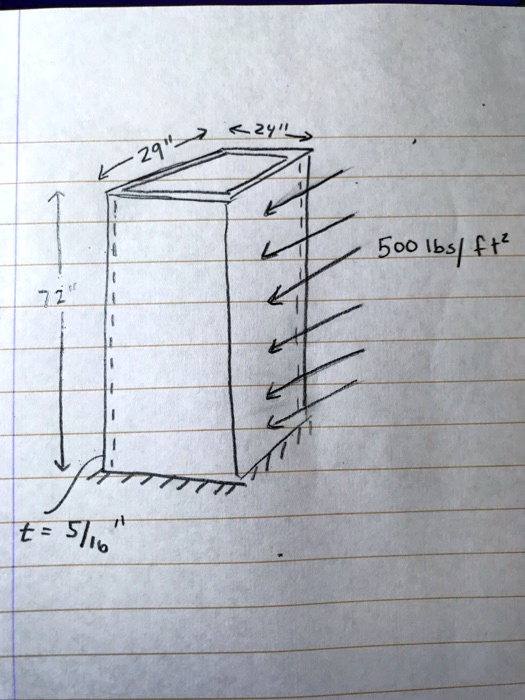 29"
24"
500 lbs/ft²
72"
t = 5/16"